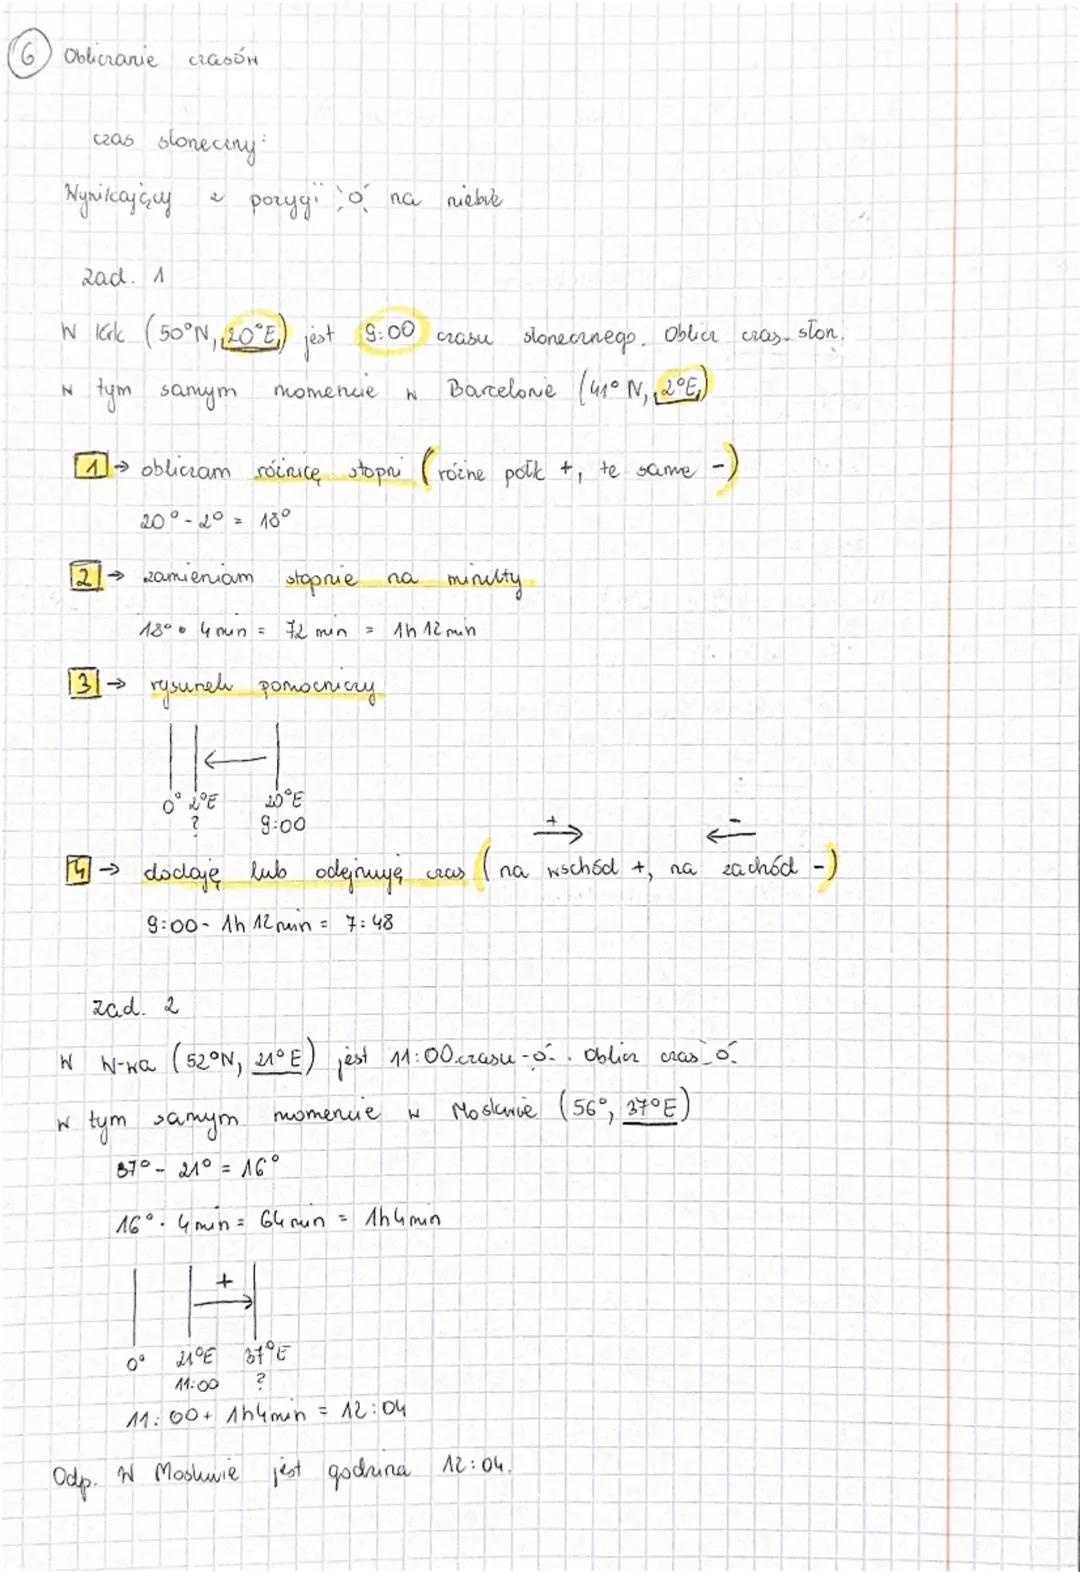 6 Obliczanie czasów
czas słoneczny:
Wynikający z pozycji na niebie
zad. 1
W Krk (50°N, 20°E) jest 9:00 czasu słonecznego. Oblicz czas słon.
w tym samym momencie w Barcelonie (41°N, 2°E)
1 → obliczam różnicę stopni (różne półk +, te same -)
20° - 2° = 18°
2 → zamieniam stopnie na minuty
18° • 4 min = 72 min = 1h 12 min
3 → rysunek pomocniczy
←
0° 2°E 20°E
? 9:00
+ → - ←
4 → dodaję lub odejmuję czas (na wschód +, na zachód -)
9:00 - 1h 12 min = 7:48
zad. 2
W W-wa (52°N, 21°E) jest 11:00 czasu. Oblicz czas
w tym samym momencie w Moskwie (56°, 37°E)
37° - 21° = 16°
16° · 4 min = 64 min = 1h 4min
+
→
0° 21°E 37°E
11:00 ?
11:00 + 1h 4min = 12:04
Odp. W Moskwie jest godzina 12:04.